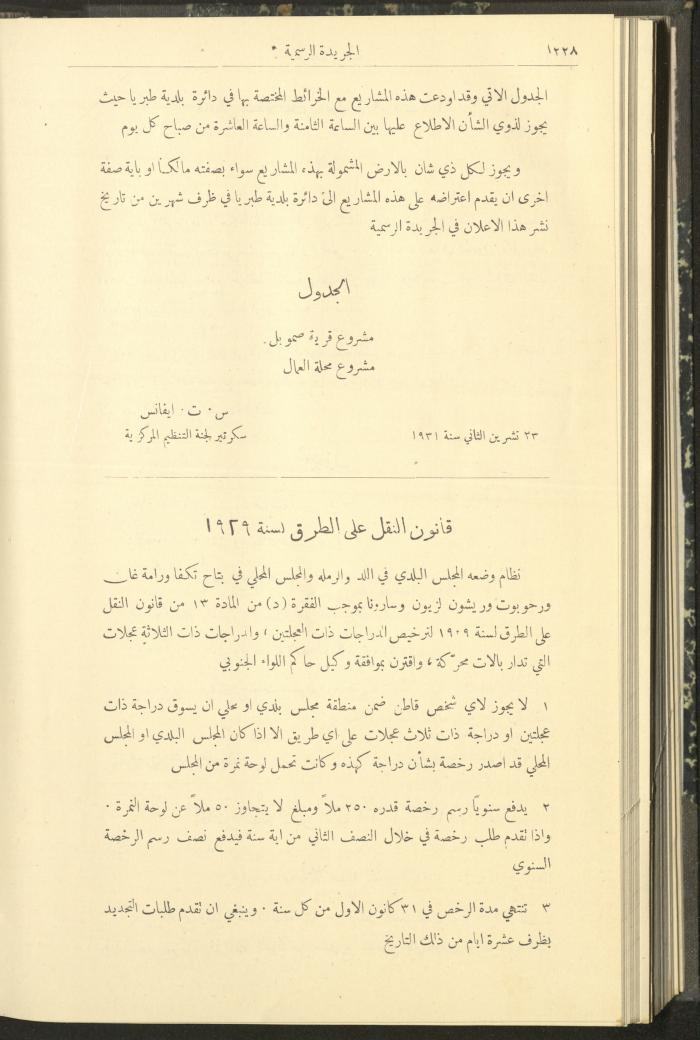 ١٢٢٨
الجريدة الرسمية *
الجدول الاتي وقد اودعت هذه المشاريع مع الخرائط المختصة بها في دائرة بلدية طبريا حيث
يجوز لذوي الشأن الاطلاع عليها بين الساعة الثامنة والساعة العاشرة من صباح كل يوم
ويجوز لكل ذي شان بالارض المشمولة بهذه المشاريع سواء بصفته مالكاً او باية صفة
اخرى ان يقدم اعتراضه على هذه المشاريع الى دائرة بلدية طبريا في ظرف شهرين من تاريخ
نشر هذا الاعلان في الجريدة الرسمية
الجدول
مشروع قرية صموبل.
مشروع محلة العمال
س . ت . ايفانس
٢٣ تشرين الثاني سنة ١٩٣١
سكرتير لجنة التنظيم المركزية
قانون النقل على الطرق لسنة ١٩٢٩
نظام وضعه المجلس البلدي في اللد والرمله والمجلس المحلي في بتاح تكفا ورامة غان
ورحوبوت وريشون لزيون وسارونا بموجب الفقرة (د) من المادة ١٣ من قانون النقل
على الطرق لسنة ١٩٠٩ لترخيص الدراجات ذات العجلتين ، والدراجات ذات الثلاثة عجلات
التي تدار بالات محرّكة ، واقترن بموافقة وكيل حاكم اللواء الجنوبي
١ لا يجوز لاي شخص قاطن ضمن منطقة مجلس بلدي او محلي ان يسوق دراجة ذات
عجلتين او دراجة ذات ثلاث عجلات على اي طريق الا اذا كان المجلس البلدي او المجلس
المحلي قد اصدر رخصة بشأن دراجة كهذه وكانت تحمل لوحة نمرة من المجلس
٢ يدفع سنوياً رسم رخصة قدره ٢٥٠ ملاً ومبلغ لا يتجاوز ٥٠ ملاً عن لوحة النمرة .
واذا تقدم طلب رخصة في خلال النصف الثاني من اية سنة فيدفع نصف رسم الرخصة
السنوي
٣ تنتهي مدة الرخص في ٣١ كانون الاول من كل سنة . وينبغي ان تقدم طلبات التجديد
بظرف عشرة ايام من ذلك التاريخ